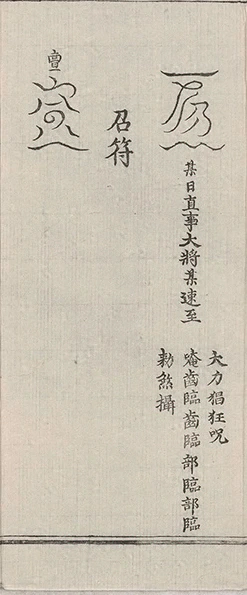 某日直事大將某速至
大力猖狂咒
唵齒臨齒臨部臨部臨
勅煞攝
召符